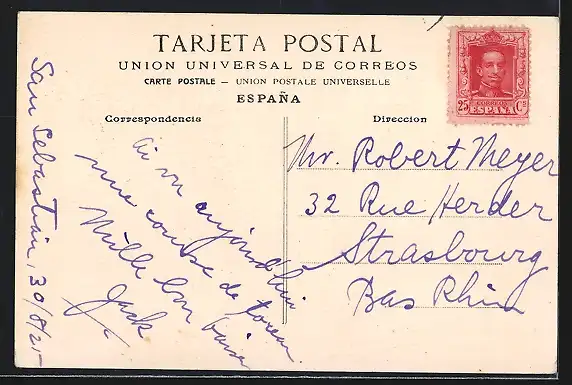 TARJETA POSTAL
UNION UNIVERSAL DE CORREOS
CARTE POSTALE – UNION POSTALE UNIVERSELLE
ESPAÑA
Correspondencia
Direccion
CORREOS
25 ESPAÑA Cs
San Sebastian, 30/8/25
ai vu aujourd'hui
une course de
Mille bon baiser
Jack
Mr. Robert Meyer
32 Rue Herder
Strasbourg
Bas Rhin